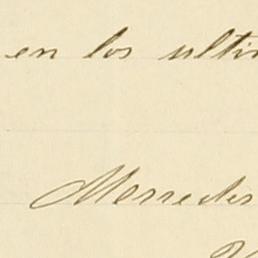 en los ulti
Mercedes